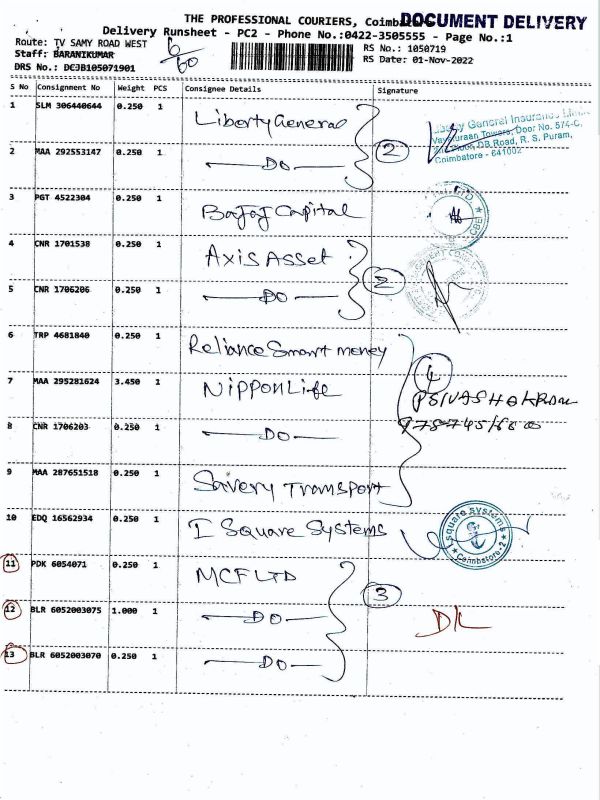 THE PROFESSIONAL COURIERS, Coimbatore
DOCUMENT DELIVERY
Delivery Runsheet - PC2 - Phone No.:0422-3505555 - Page No.:1
Route: TV SAMY ROAD WEST
6/60
RS No.: 1050719
Staff: BARANIKUMAR
RS Date: 01-Nov-2022
DRS No.: DCJB105071901
S No Consignment No Weight PCS Consignee Details Signature
1 SLM 306440644 0.250 1 Liberty General
Liberty General Insurance
Towers, Door No. 574-C,
Floor, DB Road, R. S. Puram,
Coimbatore - 641002
2 MAA 292553147 0.250 1 —DO— 2
3 PGT 4522304 0.250 1 Bajaj Capital
4 CNR 1701538 0.250 1 Axis Asset
5 CNR 1706206 0.250 1 —DO— 2
6 TRP 4681840 0.250 1 Reliance Smart money
7 MAA 295281624 3.450 1 Nippon Life 4
8 CNR 1706203 0.250 1 —DO—
9 MAA 287651518 0.250 1 Savery Transport
10 EDQ 16562934 0.250 1 I Square Systems
I Square Systems Coimbatore-2
11 PDK 6054071 0.250 1 MCF LTD
12 BLR 6052003075 1.000 1 —DO— 3
DL
13 BLR 6052003070 0.250 1 —DO—